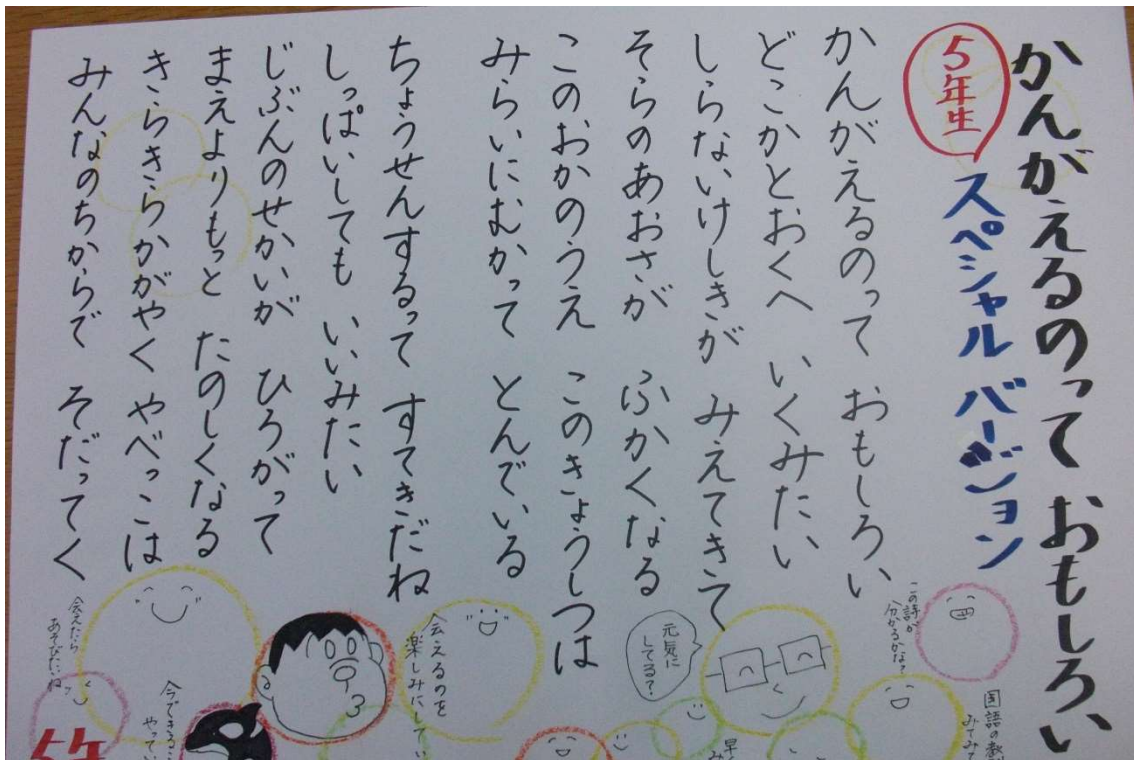 かんがえるのって おもしろい
5年生
スペシャル バージョン
かんがえるのって おもしろい
どこかとおくへ いくみたい
しらないけしきが みえてきて
そらのあおさが ふかくなる
このおかのうえ このきょうしつは
みらいにむかって とんでいる
ちょうせんするって すてきだね
しっぱいしても いいみたい
じぶんのせかいが ひろがって
まえよりもっと たのしくなる
きらきらかがやく やべっこは
みんなのちからで そだってく
この詩が
分かるかな?
国語の教
みてみて
元気に
してる?
早く
み
会えるのを
楽しみにしてい
今できるこ
やってい
会えたら
あそびたいね
5年